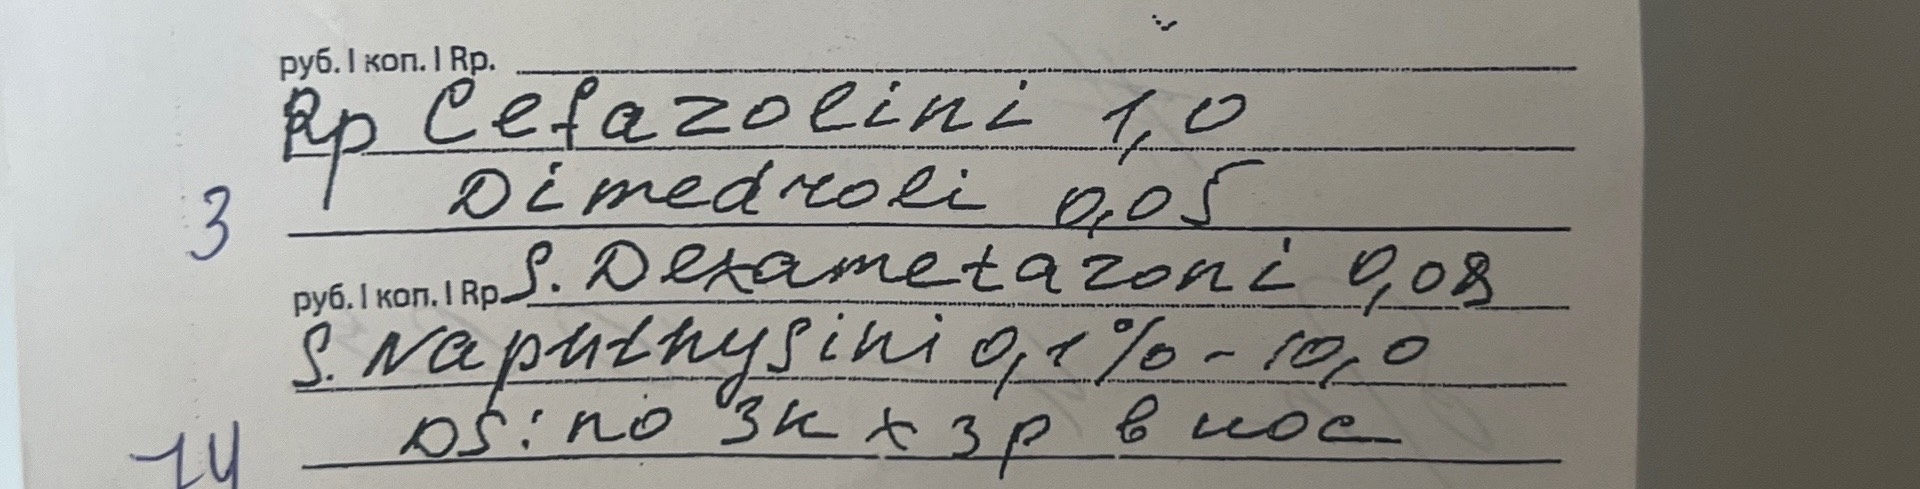 руб. | коп. | Rp.
Rp Cefazolini 1,0
Dimedroli 0,05
3
S. Dexametazoni 0,08
руб. | коп. | Rp
S. Naphthysini 0,1% - 10,0
DS: по 3к x 3р в нос
14